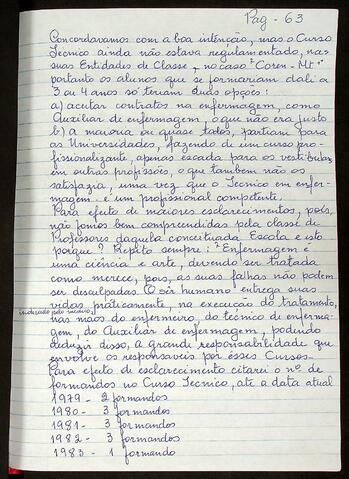 Pag - 63
Concordavamos com a boa intenção, mas o Curso
Tecnico ainda não estava regulamentado, nas
suas Entidades de Classe, no caso "Coren - Mt"
portanto os alunos que se formariam dali a
3 ou 4 anos só teriam duas opções:
a) aceitar contratos na enfermagem, como
Auxiliar de enfermagem, o que não era justo
b) a maioria ou quase todos, partiam para
as Universidades, fazendo de um curso pro-
fissionalizante, apenas escada para os vestibulares
em outras profissões, o que também não os
satisfazia, uma vez que o Tecnico em enfer-
magem é um profissional competente.
Para efeito de maiores esclarecimentos, pois,
não fomos bem compreendidas pela classe de
Professores daquela conceituada Escola e isto
porque? Repito sempre: Enfermagem é
uma ciência e arte, devendo ser tratada
como merece, pois, as suas falhas não podem
ser desulpadas. O sêr humano entrega suas
vidas práticamente, na execução do tratamento,
indicado pelo médico,
nas mãos do enfermeiro, do tecnico de enferma-
gem, do Auxiliar de enfermagem, podendo
deduzir disso, a grande responsabilidade que
envolve os responsaveis por êsses Cursos-
Para efeito de esclarecimento citarei o nº de
formandos no Curso Tecnico, até a data atual
1979 - 2 formandos
1980 - 3 formandos
1981 - 3 formandos
1982 - 3 formandos
1983 - 1 formando